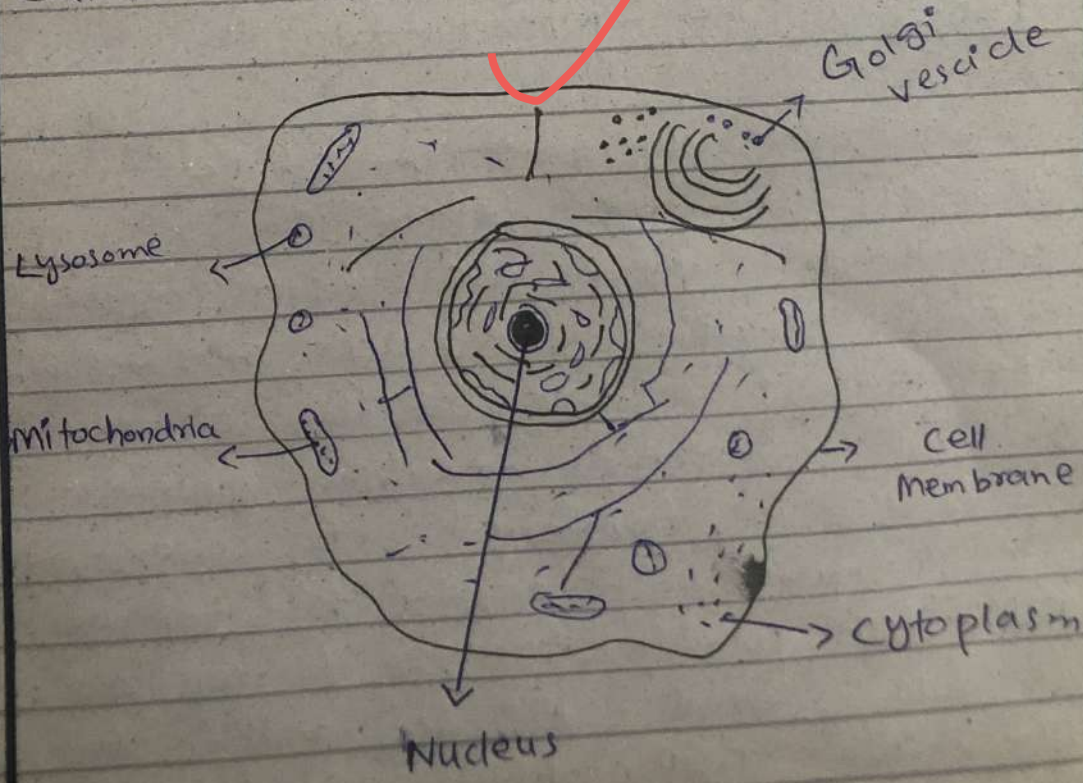 Golgi
vescicle
Lysosome
Mitochondria
Cell
Membrane
Cytoplasm
Nucleus